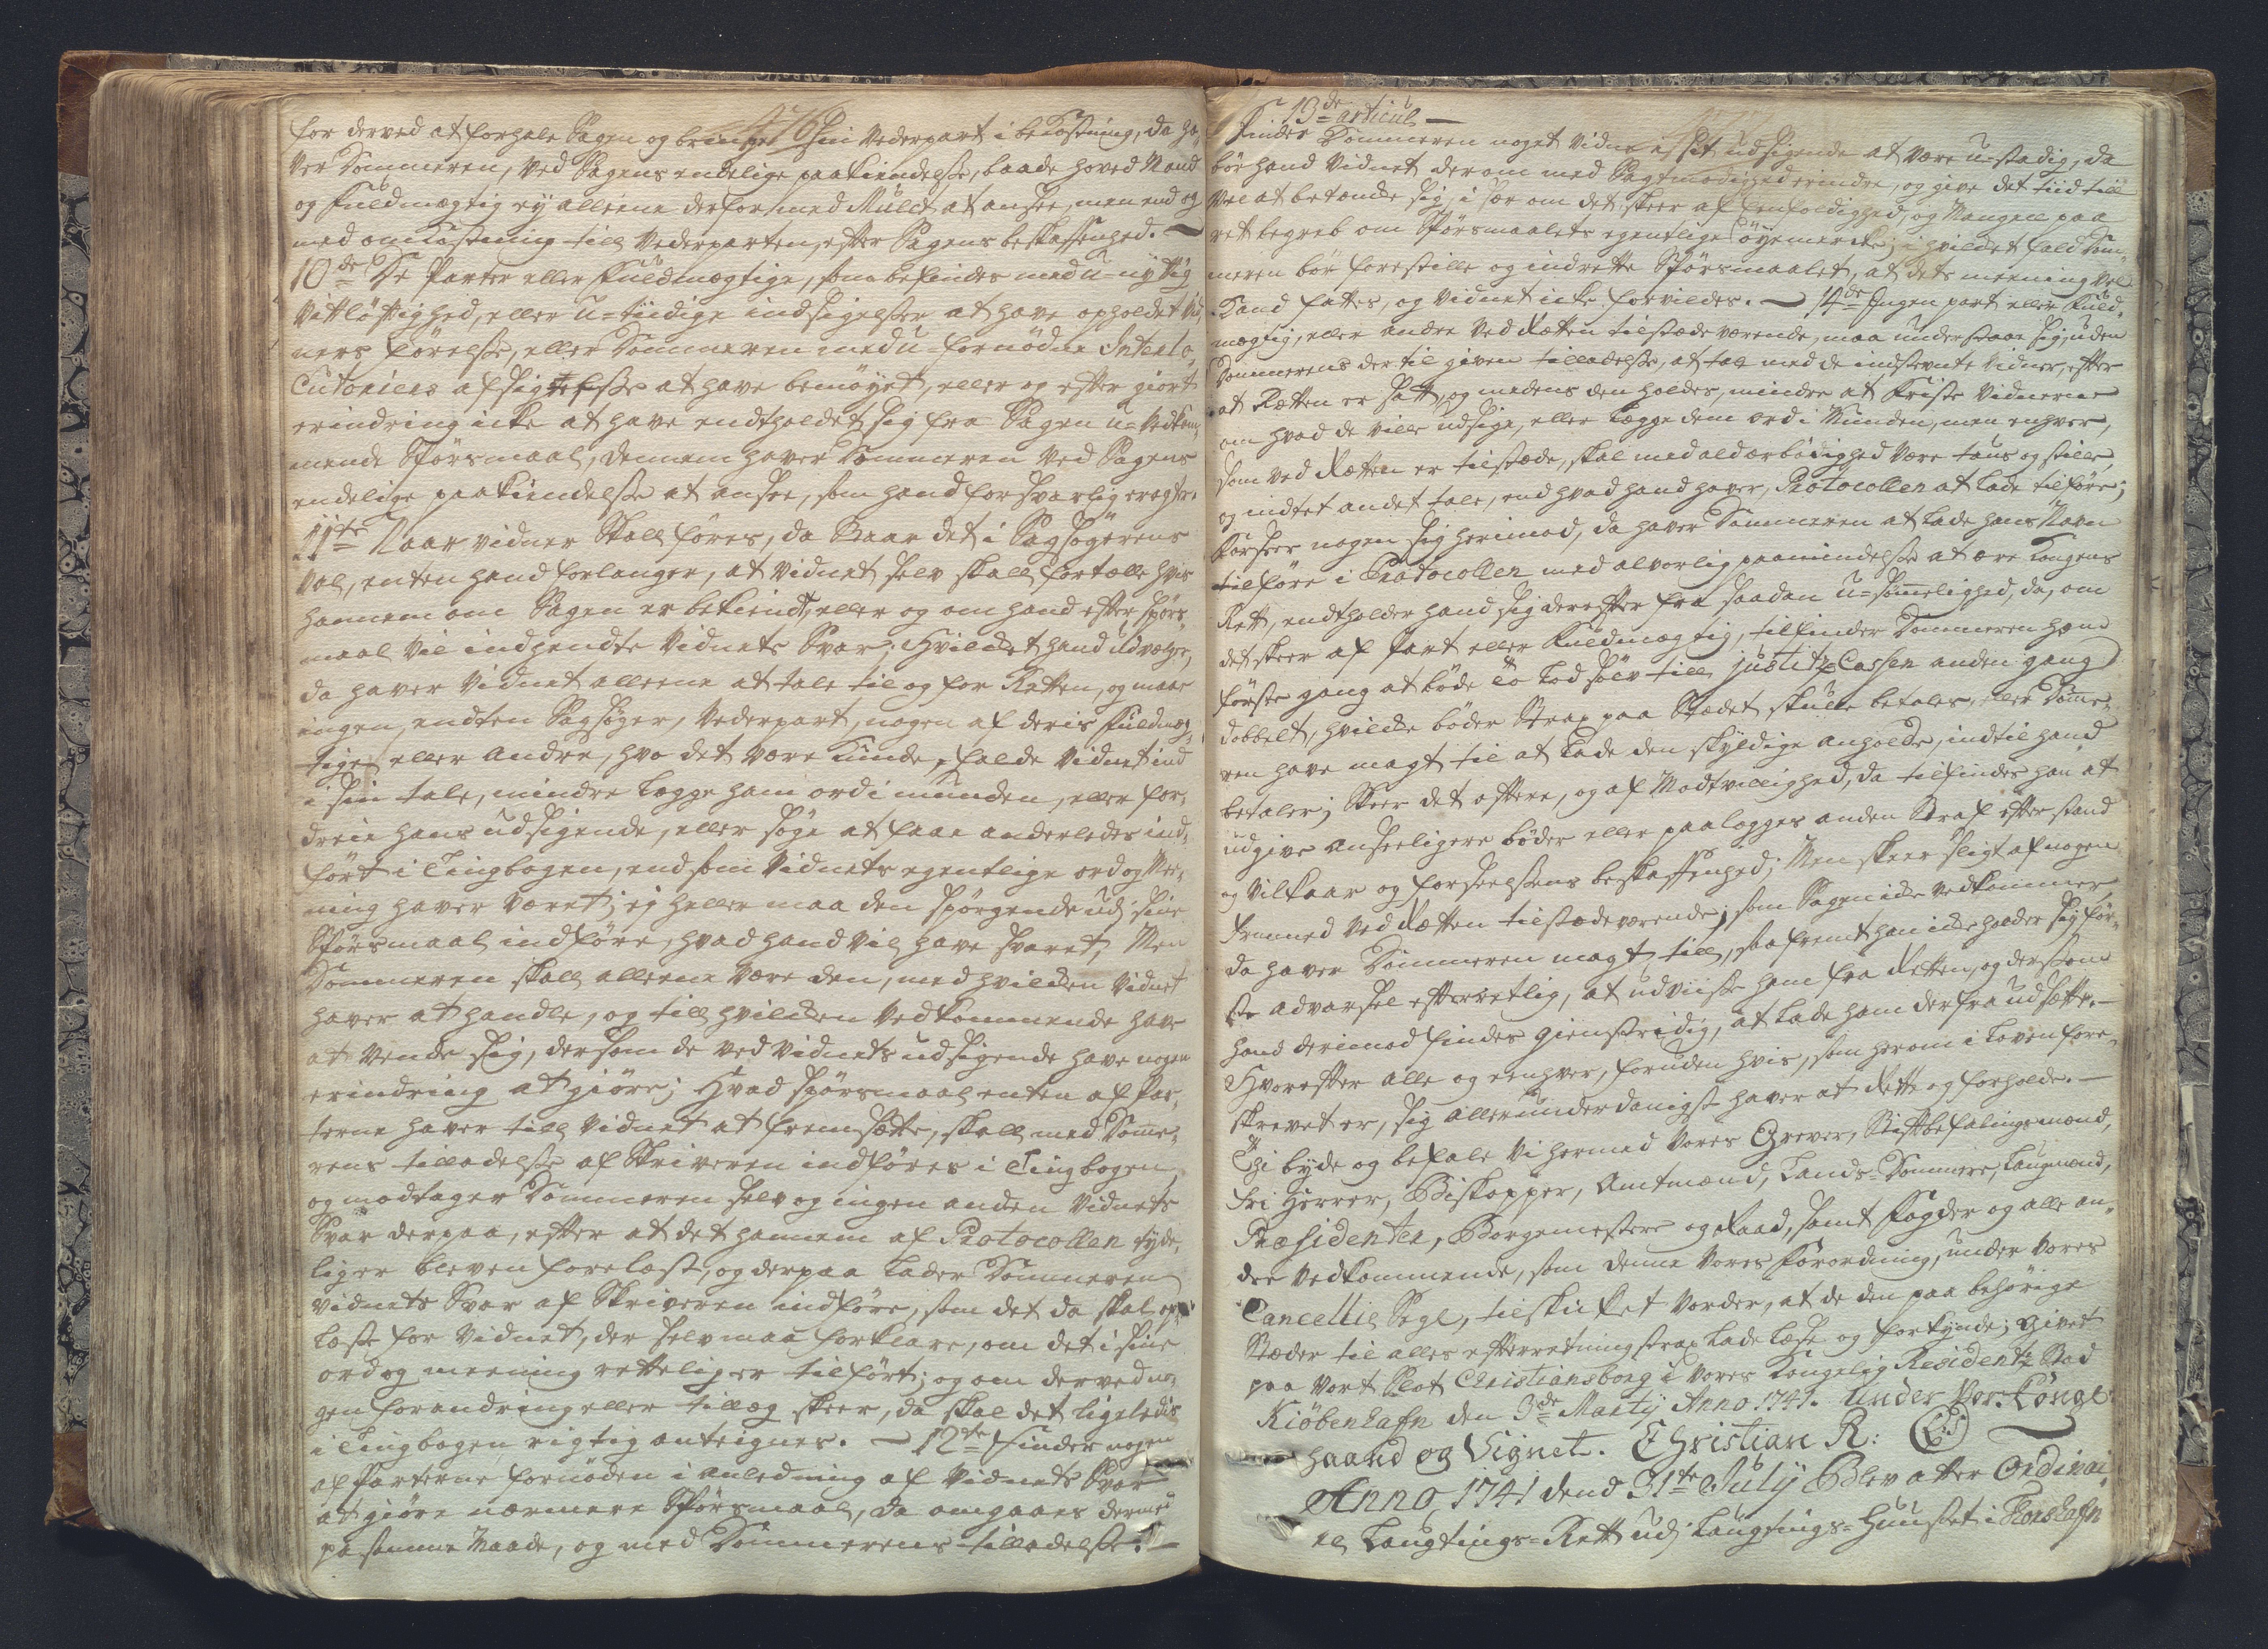 for derved at forhale Sagen og bringe sin Vederpart i bekostning, da ha-
ver Dommeren, ved Sagens endelige paakiendelsse, baade hoved Mand
og fuldmægtig ey alleene derfor med Mulct at ansee, men end og
med omkostning till Vederparten, efter Sagens beskaffenhed. —
10de De Parter eller fuldmægtige, som befindes med u-nyttig
Vittløftighed, eller u-tiidige indsigelsser at have opholdet Vid-
ners förelsse, eller Dommeren med u-fornødne Interlo-
cutoriers afsigelsse at have bemøyet, eller og efter giort
erindring icke at have endtholdet sig fra Sagen u-vedkom-
mende Spørsmaal, dennem haver Dommeren ved Sagens
endelige paakiendelsse at ansee, som hand forsvarlig eragter
11te Naar vidner skall føres, da staar det i Sagsøgerens
val, enten hand forlanger, at vidnet selv skall fortælle hvis
hannem om Sagen er bekiendt, eller og om hand efter spørs-
maal vil indhendte Vidnets Svar; Hvilcket hand udvælger,
da haver Vidnet alleene at tale til og for Retten, og maae
ingen, endten Sagsøger, Vederpart, nogen af deris fuldmæg-
tiger eller Andre, hvo det være kunde, falde Vidnet ind
i sin tale, mindre legge ham ord i munden, eller for-
dreie hans udsigende, eller søge at faae anderledes ind-
fört i Tingbogen, end som Vidnets egentlige ord og Mee-
ning haver været; ej heller maa den spørgende udj sine
Spörsmaal indføre, hvad hand vil have svaret, Men
Dommeren skall alleene være den, med hvilcken Vidnet
haver at handle, og till hvilcken Vedkommende have
at vende sig, dersom de ved Vidnets udsigende have nogen
erindring at giöre; Hvad spörsmaal enten af Par-
terne haver till Vidnet at fremsette, skall med Dome-
rens tilladelsse af Skriveren indføres i Tingbogen,
og modtager Dommeren selv og ingen anden Vidnets
Svar derpaa, efter at det hannem af Protocollen tyde-
lig er bleven forelæst, og derpaa lader Dommeren
vidnets Svar af Skriveren indføre, som det da skal op-
læsse for Vidnet, der selv maa forklare, om det i sine
ord og meening rettelig er tilfört; og om derved no-
gen forandring eller tillæg skeer, da skal det ligeledis
i Tingbogen rigtig anteignes. — 12te Finder nogen
af Parterne fornöden i anledning af Vidnets Svar
at giøre nærmere Spörsmaal, da omgaaes dermed
på samme Maade, og med Dommerens tilladelsse. —
13de articul —
Finder Dommeren noget Vidne i sit udsigende at være ustadig, da
bör hand Vidnet derom med Sagtmodighed erindre, og give det tiid till
vel at betænke sig, i sær om det skeer af eenfoldighed, og Mangell paa
ret begreb om Spörsmaalets egentlige öyemerke; i hvilcket fald Dom-
meren bör forestille og indrette Spörsmaalet, at dets meening vel
kand fattes, og Vidnet icke forvildes. — 14de Ingen part eller Fuld-
mægtig, eller andre ved Retten tilstædeværende, maa understaae sig, uden
Dommerens der til given tilladelsse, at tale med de indstevnte Vidner, efter
at Retten er satt, og medens den holdes, mindre at friste Vidnerne
om hvad de ville udsige, eller legge dem ord i Munden, men enhver,
som ved Retten er tilstæde, skal med ald ærbødighed være taus og stille
og indtet andet tale, end hvad hand haver, Protocollen at lade tilføre;
Forseer nogen sig herimod, da haver Dommeren at lade hans Navn
tilføre i Protocollen med alvorlig paamindelsse at ære Kongens
Rett, endtholder hand sig derefter fra saadan u-sømmelighed, da, om
det skeer af part eller Fuldmægtig, tilfinder Dommeren ham
første gang at bøde to Lod sölv till justitz Cassen anden gang
dobbelt, hvilcke bøder strax paa Stædet skulle betales, eller Domme-
ren have magt til at lade den skyldige anholde, indtil hand
betaler; Skeer det oftere, og af Modtvillighed, da tilfindes han at
udgive anseeligere bøder eller paalegges anden Straf efter stand
og vilkaar og forseelsens beskaffenhed; Men skeer sligt af nogen
fremmed ved Retten tilstædeværende, som Sagen icke vedkommer,
da haver Dommeren magt till, saafremt han icke holder sig för-
ste advarsel efterretlig, at udviisse ham fra Retten, og dersom
hand derimod findes gienstridig, at lade ham derfra udsette. —
Hvorefter alle og eenhver, foruden hvis, som herom i Loven fore-
skrevet er, sig allerunderdanigst haver at Rette og forholde. —
Thi byde og befale Vi hermed Vores Grever, Stiftbefalingsmænd,
fri Herrer, Biskopper, Amtmænd, Lands-Dommere, Laugmænd,
Præsidenter, Borgemestere og Raad, samt Fogder og alle an-
dre Vedkommende, som denne Vores Forordning, under Vores
Cancellie Segl, tilskicket vorder, at de den paa behørige
Stæder til alles efterretning strax lade læse og forkynde; Givet
paa Vort Slot Christiansborg i Vores Kongelig Residentz Stad
Kiöbenhafn den 3de Martij Anno 1741. Under Vor Kongl:
Haand og Signet. Christian R: (L.S.)
Anno 1741 dend 31te July Blev atter Ordinai-
re Laugtings-Rett udj Laugtings-Huuset i Thorshafn